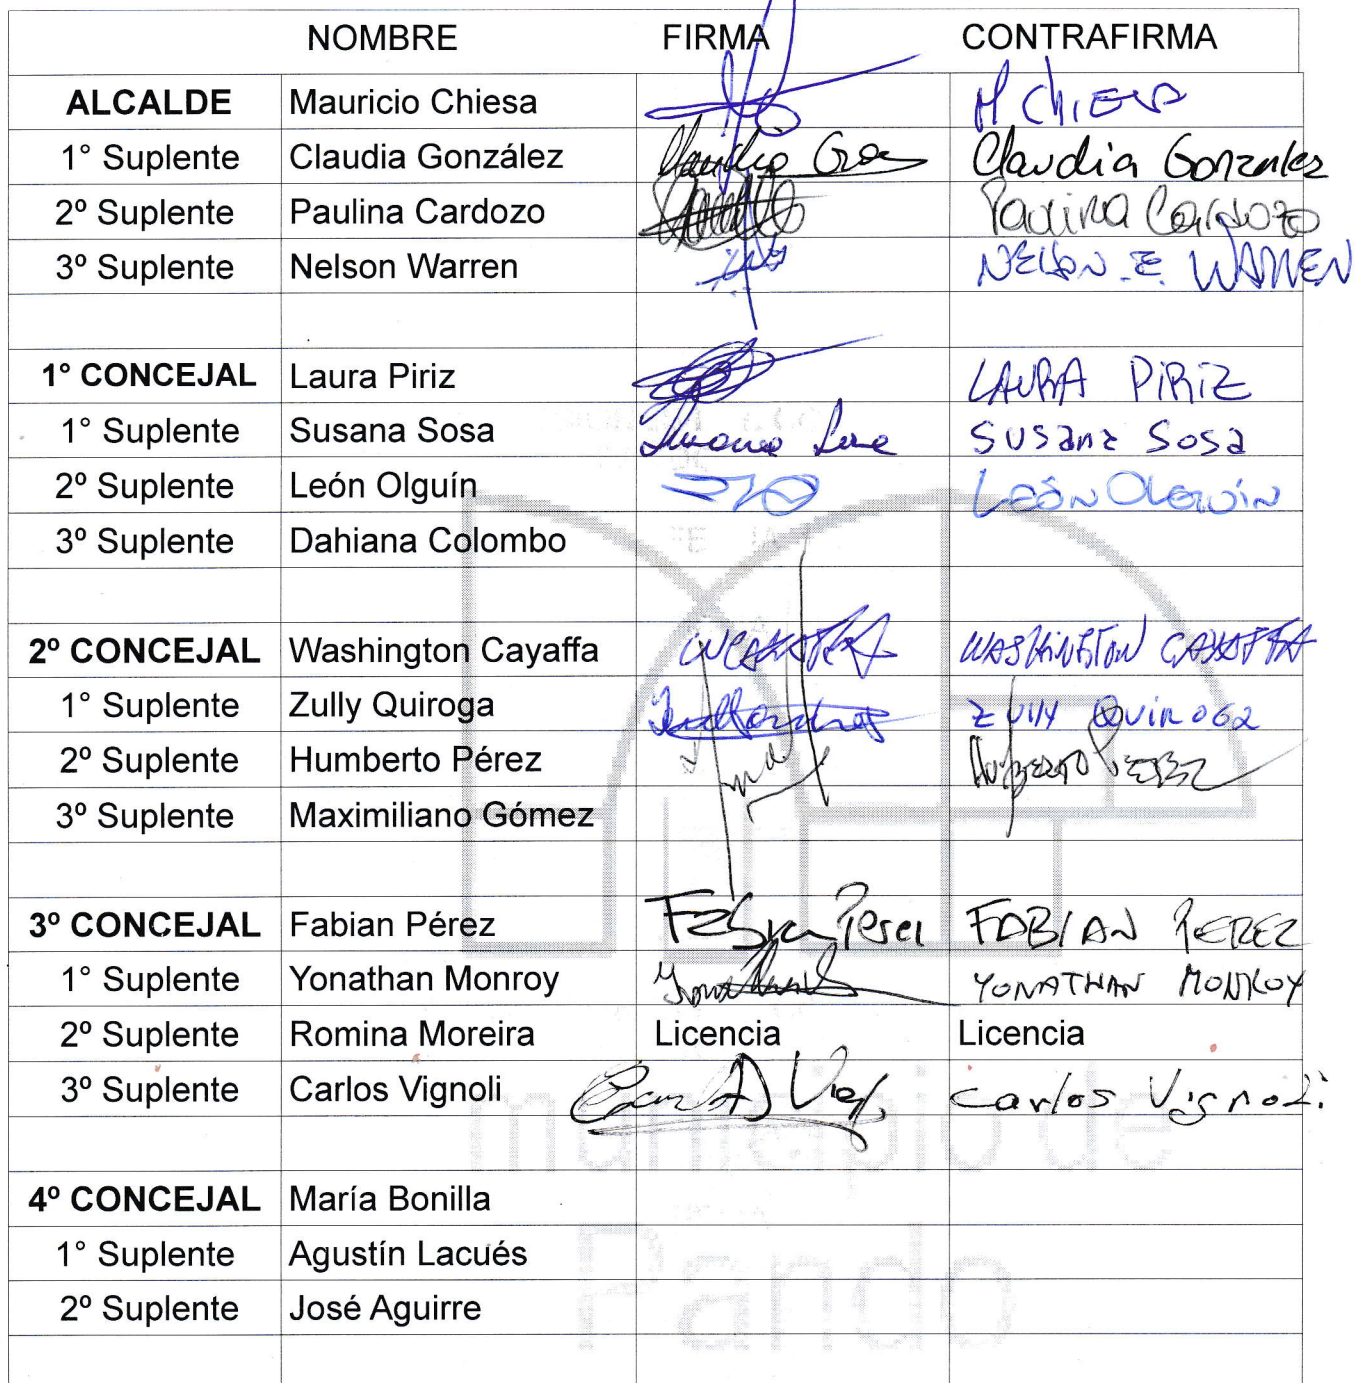 NOMBRE FIRMA CONTRAFIRMA
ALCALDE Mauricio Chiesa M CHIESA
1° Suplente Claudia González Claudia Gonzalez
2º Suplente Paulina Cardozo Paulina Cardozo
3º Suplente Nelson Warren NELSON E WARREN
1° CONCEJAL Laura Piriz LAURA PIRIZ
1° Suplente Susana Sosa Susana Sosa SUSANA SOSA
2º Suplente León Olguín LEÓN OLGUÍN
3º Suplente Dahiana Colombo
2º CONCEJAL Washington Cayaffa WASHINGTON CAYAFFA
1° Suplente Zully Quiroga ZULLY QUIROGA
2º Suplente Humberto Pérez HUMBERTO PEREZ
3º Suplente Maximiliano Gómez
3º CONCEJAL Fabian Pérez Fabian Perez FABIAN PEREZ
1° Suplente Yonathan Monroy YONATHAN MONROY
2º Suplente Romina Moreira Licencia Licencia
3º Suplente Carlos Vignoli Carlos Vignoli
municipio de
4º CONCEJAL María Bonilla
1° Suplente Agustín Lacués
Pando
2º Suplente José Aguirre